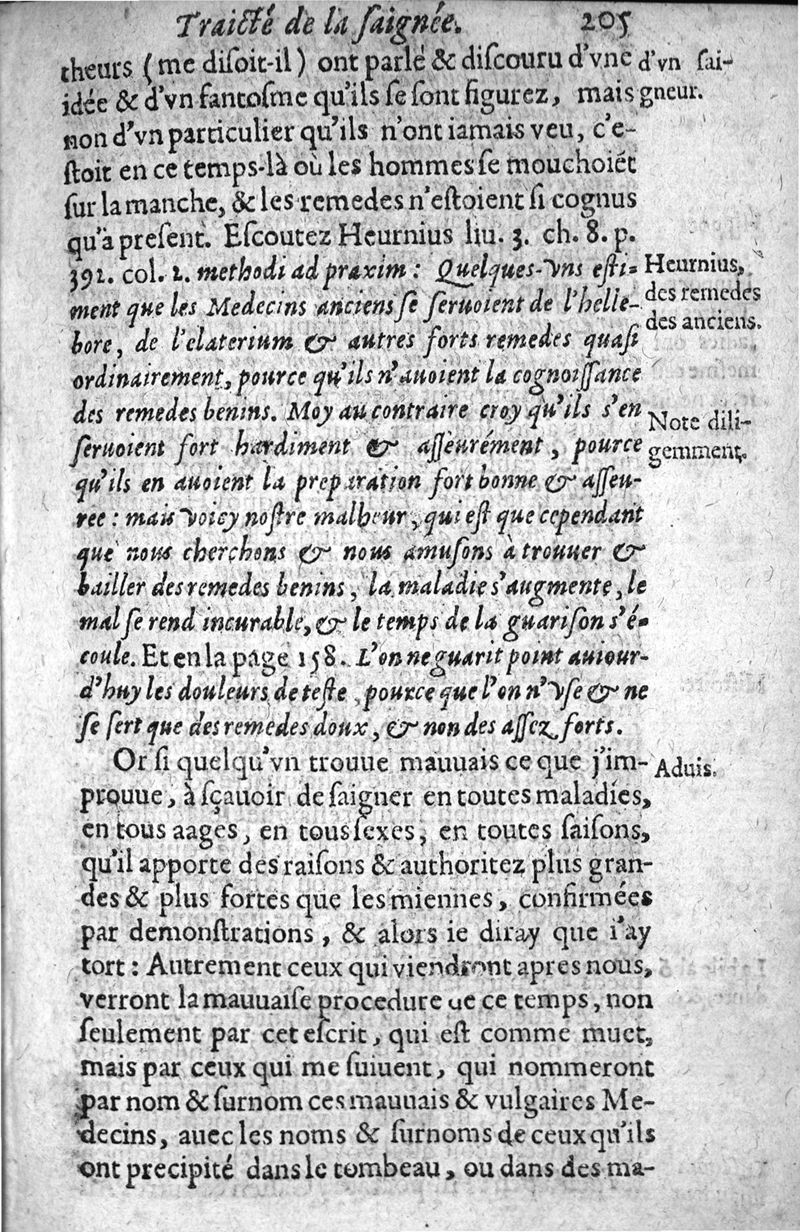 Traicté de la ſaignée. 205
theurs (me diſoit-il) ont parlé & diſcouru d'vne
idée & d'vn fantoſme qu'ils ſe ſont figurez, mais
non d'vn particulier qu'ils n'ont iamais veu, c'e-
ſtoit en ce temps-là où les hommes ſe mouchoiẽt
ſur la manche, & les remedes n'eſtoient ſi cognus
qu'à preſent. Eſcoutez Heurnius liu. 3. ch. 8. p.
391. col. 1. methodi ad praxim : Quelques-vns eſti-
ment que les Medecins anciens ſe ſeruoient de l'helle-
bore, de l'elaterium & autres forts remedes quaſi
ordinairement, pource qu'ils n'auoient la cognoiſſance
des remedes benins. Moy au contraire croy qu'ils s'en
ſeruoient fort hardiment & aſſeurément, pource
qu'ils en auoient la preparation fort bonne & aſſeu-
ree : mais voicy noſtre malheur, qui eſt que cependant
que nous cherchons & nous amuſons à trouuer &
bailler des remedes benins, la maladie s'augmente, le
mal ſe rend incurable, & le temps de la guariſon s'é-
coule. Et en la page 158. L'on ne guarit point auiour-
d'huy les douleurs de teſte, pource que l'on n'vſe & ne
ſe ſert que des remedes doux, & non des aſſez forts.
Or ſi quelqu'vn trouue mauuais ce que j'im-
prouue, à ſçauoir de ſaigner en toutes maladies,
en tous aages, en tous ſexes, en toutes ſaiſons,
qu'il apporte des raiſons & authoritez plus gran-
des & plus fortes que les miennes, confirmées
par demonſtrations, & alors ie diray que i'ay
tort : Autrement ceux qui viendront apres nous,
verront la mauuaiſe procedure de ce temps, non
ſeulement par cet eſcrit, qui eſt comme muet,
mais par ceux qui me ſuiuent, qui nommeront
par nom & ſurnom ces mauuais & vulgaires Me-
decins, auec les noms & ſurnoms de ceux qu'ils
ont precipité dans le tombeau, ou dans des ma-
d'vn ſai-
gneur.
Heurnius,
des remedes
des anciens.
Note dili-
gemment.
Aduis.